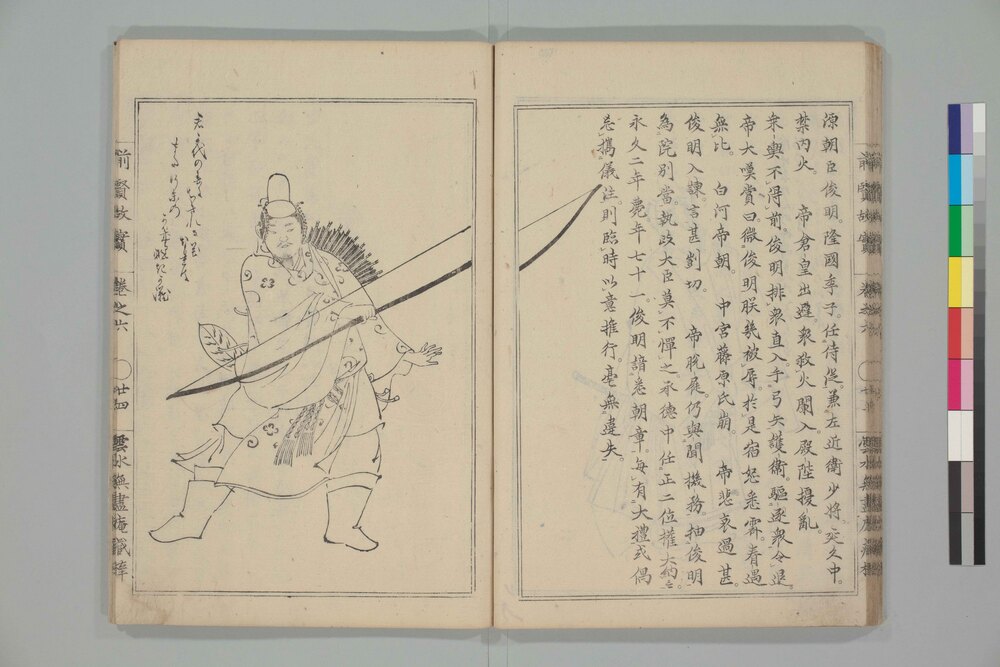 源朝臣俊明。隆國季子。任侍從。兼左近衛少將。延久中。
禁內火。　帝倉皇出避。衆救火闌入殿陛擾亂。
衆輿不得前。俊明排衆直入。手弓矢護衛。驅逐衆令退。
帝大嘆賞曰。微俊明朕幾被辱。於是宿怒悉霽。眷遇
無比。　白河帝朝。　中宮藤原氏崩。　帝悲哀過甚。
俊明入諫。言甚剴切。　帝脫屣。仍與聞機務。抽俊明
為院別當。執政大臣莫不憚之。承德中任正二位權大納言。
永久二年薨。年七十一。俊明諳悉朝章。每有大禮或偶
忘攜儀注。則臨時以意推行。毫無違失。
前賢故實　卷之六　〇廿四　雲水無盡庵藏梓